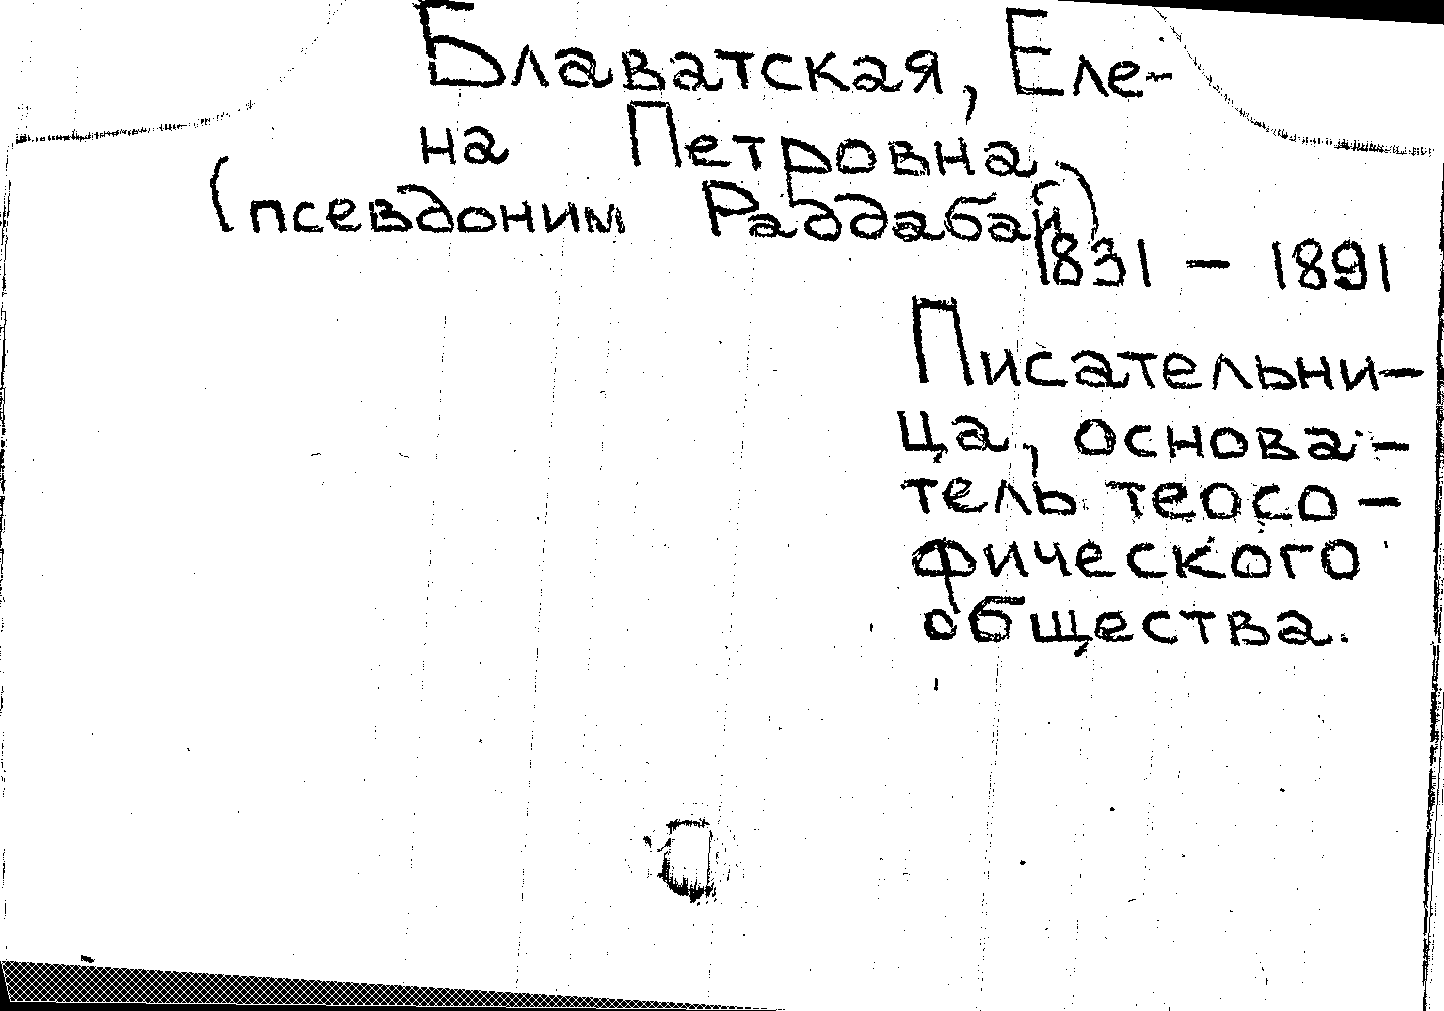 Блаватская, Еле-
на Петровна
(псевдоним Раддабай)
1831 – 1891
Писательни-
ца, основа-
тель теосо-
фического
общества.